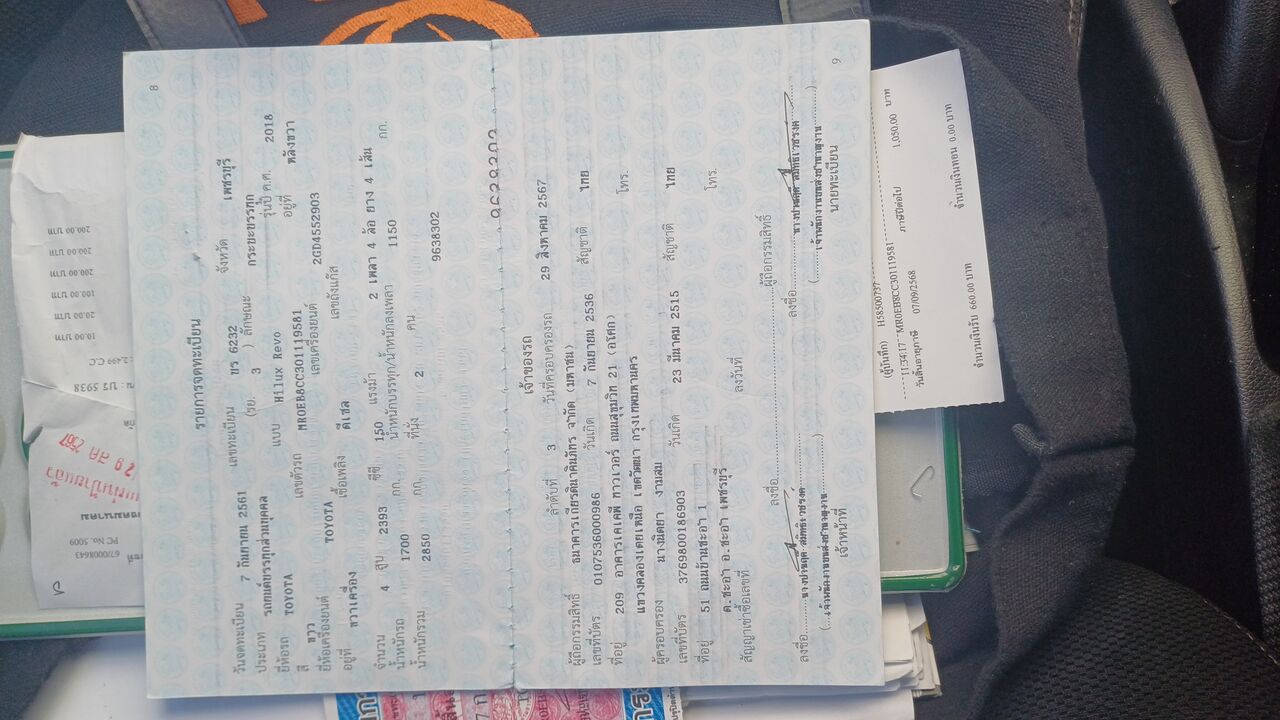 8
รายการจดทะเบียน
วันจดทะเบียน 7 กันยายน 2561 เลขทะเบียน ขร 6232 จังหวัด เพชรบุรี
ประเภท รถยนต์บรรทุกส่วนบุคคล (รย. 3 ) ลักษณะ กระบะบรรทุก
ยี่ห้อรถ TOYOTA แบบ Hilux Revo รุ่นปี ค.ศ. 2018
สี ขาว เลขตัวรถ MR0EB8CC301119581 อยู่ที่ หลังขวา
ยี่ห้อเครื่องยนต์ TOYOTA เลขเครื่องยนต์ 2GD4552903
อยู่ที่ ขวาเครื่อง เชื้อเพลิง ดีเซล เลขถังแก๊ส
จำนวน 4 สูบ 2393 ซีซี 150 แรงม้า 2 เพลา 4 ล้อ ยาง 4 เส้น
น้ำหนักรถ 1700 กก. น้ำหนักบรรทุก/น้ำหนักลงเพลา 1150 กก.
น้ำหนักรวม 2850 กก. ที่นั่ง 2 คน
9638302
เจ้าของรถ
ลำดับที่ 3 วันที่ครอบครองรถ 29 สิงหาคม 2567
ผู้ถือกรรมสิทธิ์ ธนาคารเกียรตินาคินภัทร จำกัด (มหาชน)
เลขที่บัตร 0107536000986 วันเกิด 7 กันยายน 2536 สัญชาติ ไทย
ที่อยู่ 209 อาคารเคเคพี ทาวเวอร์ ถนนสุขุมวิท 21 (อโศก) โทร.
แขวงคลองเตยเหนือ เขตวัฒนา กรุงเทพมหานคร
ผู้ครอบครอง นางนิตยา งามสม
เลขที่บัตร 3769800186903 วันเกิด 23 มีนาคม 2515 สัญชาติ ไทย
ที่อยู่ 51 ถนนบ้านชะอำ 1 โทร.
ต.ชะอำ อ.ชะอำ เพชรบุรี
สัญญาเช่าซื้อเลขที่ ลงวันที่
ลงชื่อ ผู้ถือกรรมสิทธิ์
ลงชื่อ ลงชื่อ
เจ้าหน้าที่ นายทะเบียน
9
(ผู้บันทึก) H58500757
11:54:17 MR0EB8CC301119581
วันสิ้นอายุภาษี 07/09/2568 ภาษีปีต่อไป 1,050.00 บาท
จำนวนเงินรับ 660.00 บาท จำนวนเงินทอน 0.00 บาท
10.00 บาท
20.00 บาท
100.00 บาท
200.00 บาท
200.00 บาท
67/0008643
PC No.5009